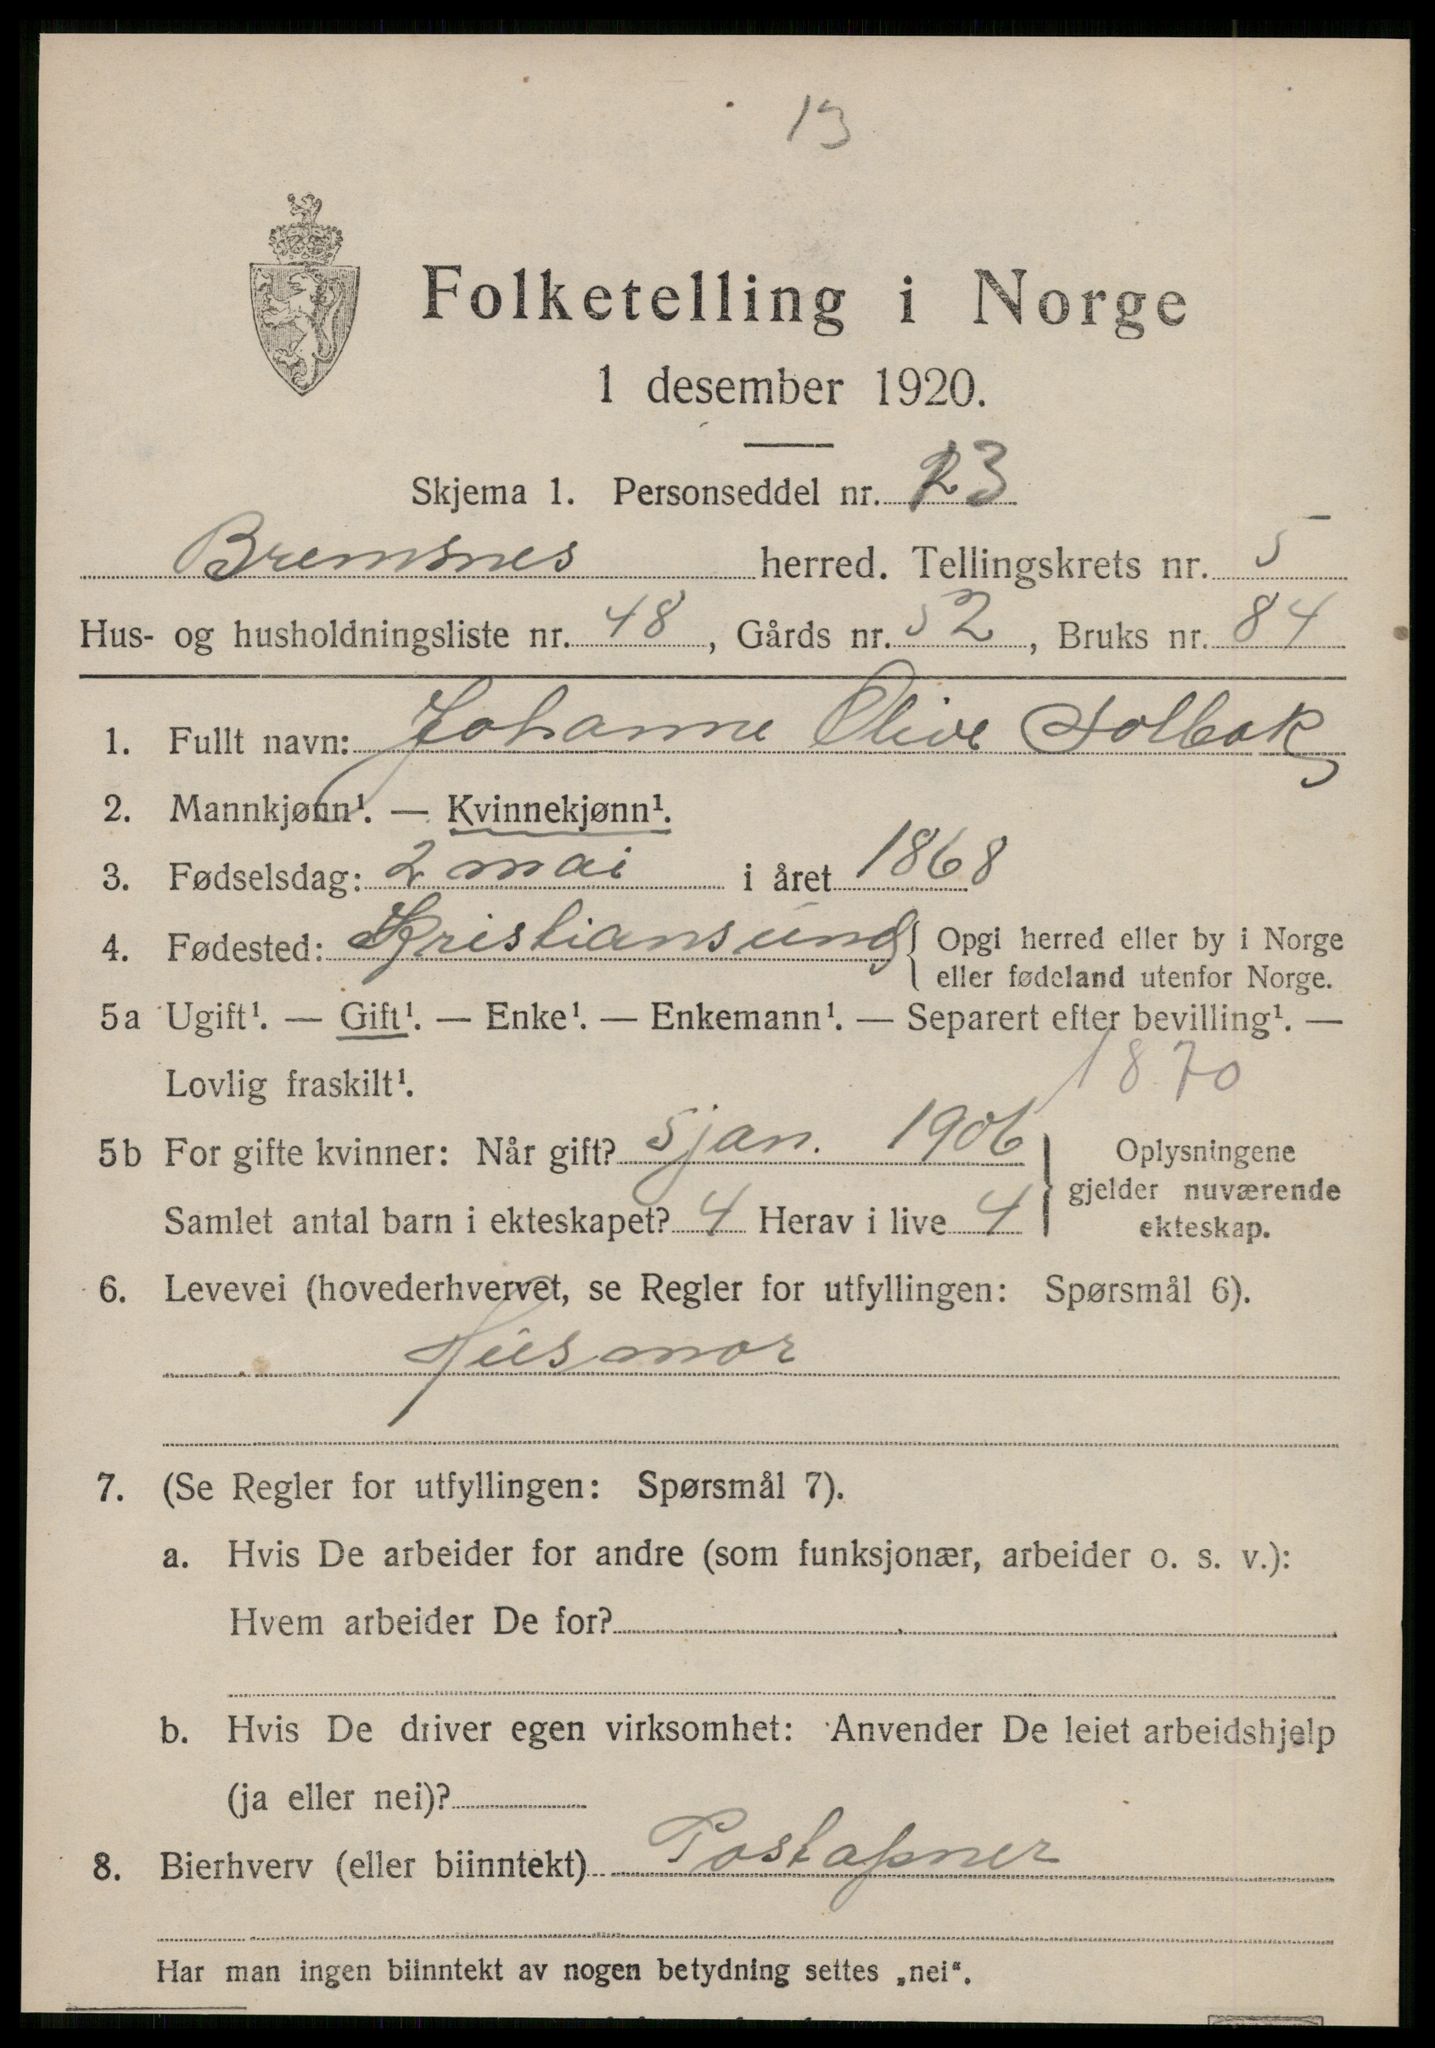 13
Folketelling i Norge
1 desember 1920.
Skjema 1. Personseddel nr. 23
Bremsnes herred. Tellingskrets nr. 5
Hus- og husholdningsliste nr. 48, Gårds nr. 52, Bruks nr. 84
1. Fullt navn: Johanne Olive Solbak
2. Mannkjønn¹. — Kvinnekjønn¹.
3. Fødselsdag: 2 mai i året 1868
4. Fødested: Kristiansund { Opgi herred eller by i Norge
eller fødeland utenfor Norge.
5a Ugift¹. — Gift¹. — Enke¹. — Enkemann¹. — Separert efter bevilling¹. —
Lovlig fraskilt¹. 1870
5b For gifte kvinner: Når gift? 5 jan. 1906 } Oplysningene
gjelder nuværende
Samlet antal barn i ekteskapet? 4 Herav i live 4 ekteskap.
6. Levevei (hovederhvervet, se Regler for utfyllingen: Spørsmål 6).
Husmor
7. (Se Regler for utfyllingen: Spørsmål 7).
a. Hvis De arbeider for andre (som funksjonær, arbeider o. s. v.):
Hvem arbeider De for?
b. Hvis De driver egen virksomhet: Anvender De leiet arbeidshjelp
(ja eller nei)?
8. Bierhverv (eller biinntekt) Postaapner
Har man ingen biinntekt av nogen betydning settes „nei“.